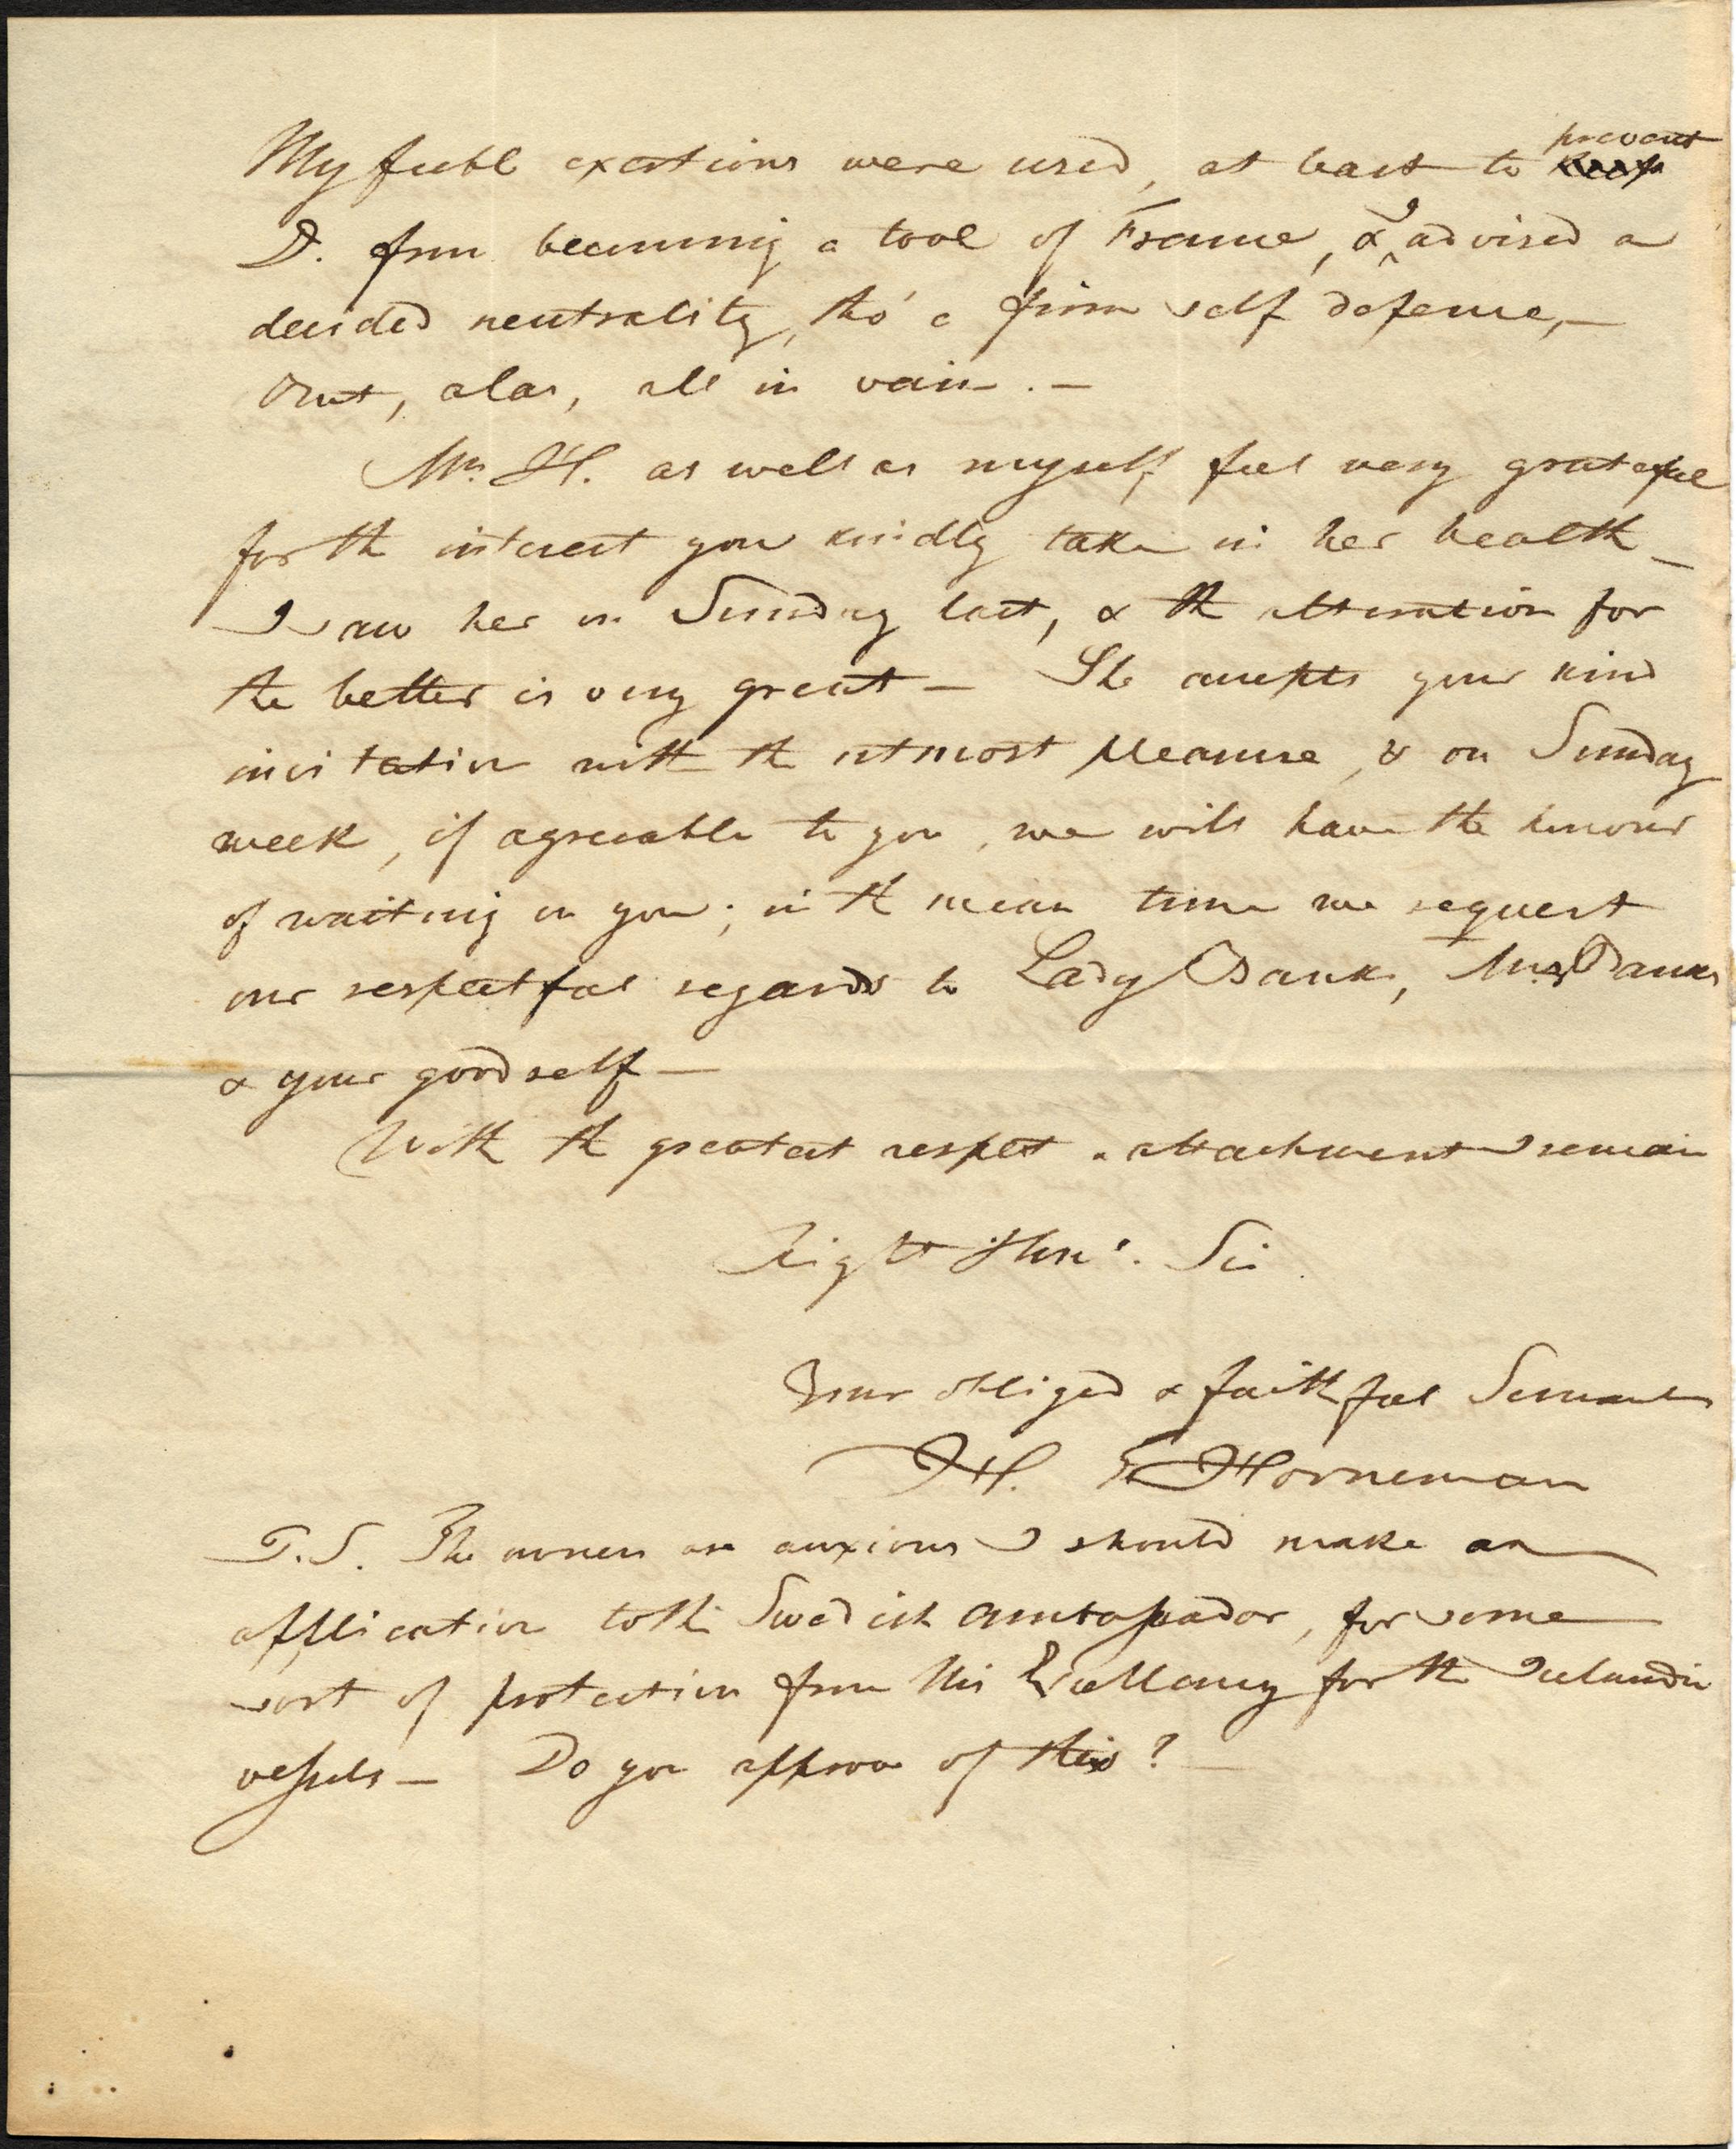 My feeble exertions were used, at least to prevent
D. from becoming a tool of France, & I advised a
decided neutrality, tho' a firm self defence, —
But, alas, all in vain. —
Mrs. H. as well as myself feel very grateful
for the interest you kindly take in her health —
I saw her on Sunday last, & the alteration for
the better is very great — She accepts your kind
invitation with the utmost pleasure, & on Sunday
week, if agreeable to you, we will have the honour
of waiting on you; in the mean time we request
our respectful regards to Lady Banks, Mrs Banks
& your good self —
With the greatest respect & attachment I remain
Right Honl. Sir
Your obliged & faithful Servant
H. F. Horneman
P.S. The owners are anxious I should make an
application to the Swedish Ambassador, for some
sort of protection from His Excellency for the Icelandic
vessels — Do you approve of this? —